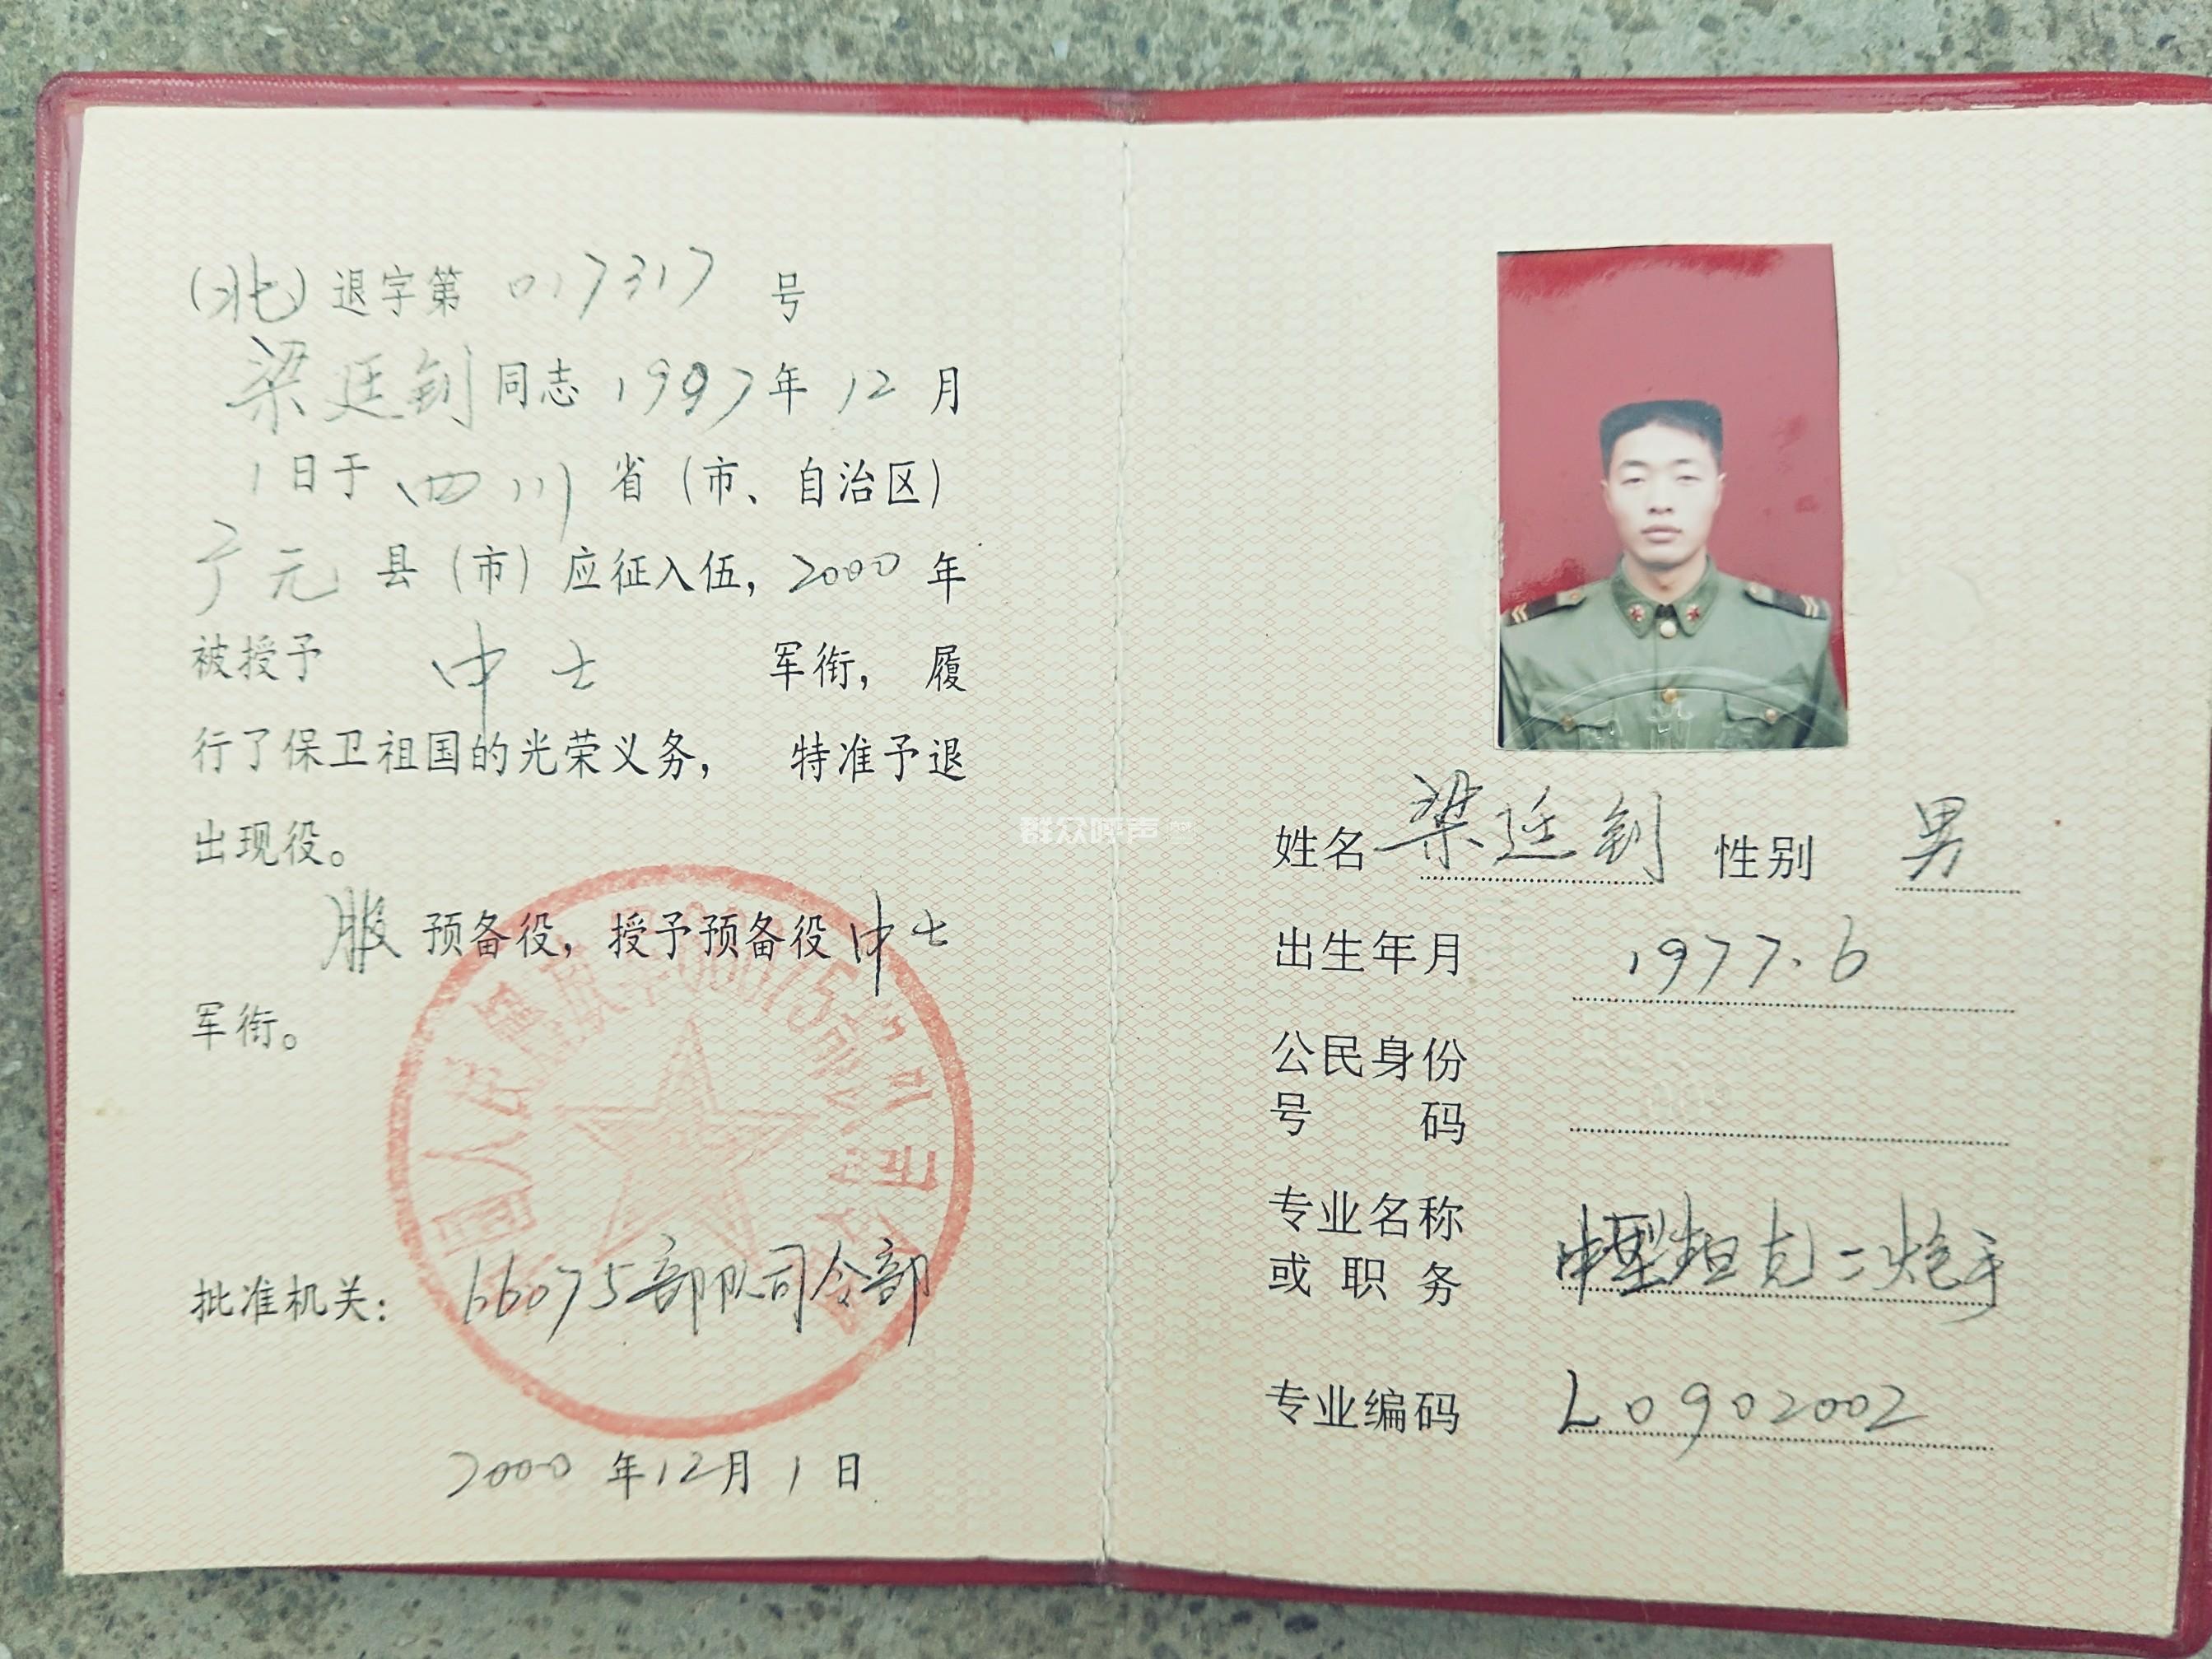 （北）退字第 017317 号
梁廷钊同志 1997年 12 月
1 日于 四川 省（市、自治区）
广元 县（市）应征入伍，2000 年
被授予 中士 军衔， 履
行了保卫祖国的光荣义务， 特准予退
出现役。
服 预备役，授予预备役 中士
军衔。
批准机关： 66075部队司令部
2000 年 12 月 1 日
群众呼声
姓名 梁廷钊 性别 男
出生年月 1977.6
公民身份
号 码
专业名称
或 职 务 中型坦克二炮手
专业编码 L0902002